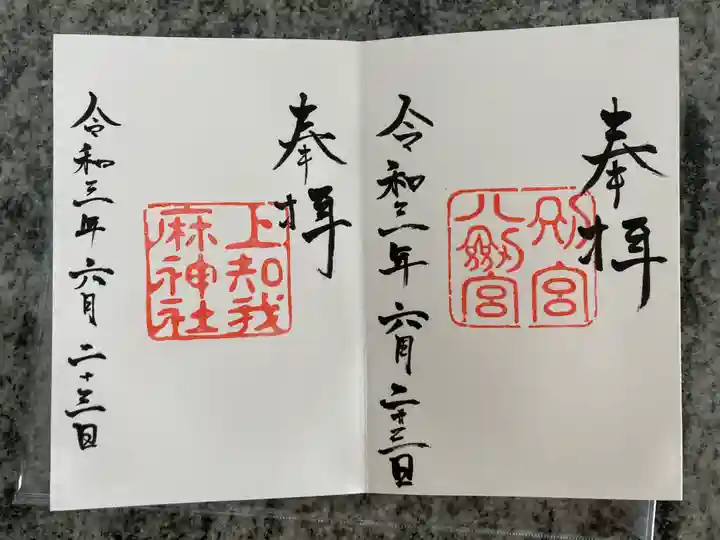 奉拝
別宮
八劔宮
令和三年六月二十三日
奉拝
上知我
麻神社
令和三年六月二十三日